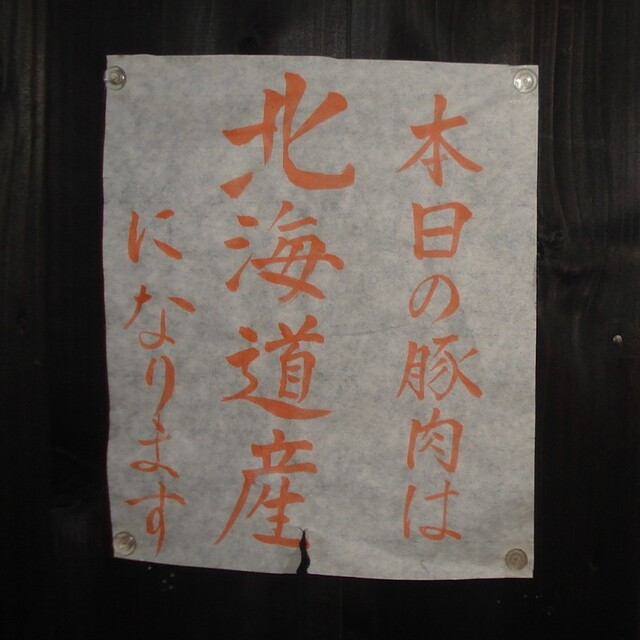 本日の豚肉は
北海道産
になります